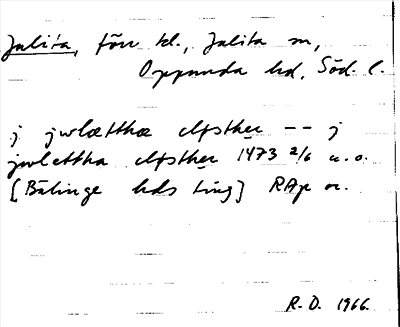 Julita, förr kl., Julita sn,
Oppunda hd, Söd. l.
j jwlætthæ clpsther -- j
jwlettha clpsther 1473 2/6 u. o.
[Bälinge hds ting] RAp or.
R. D. 1966.